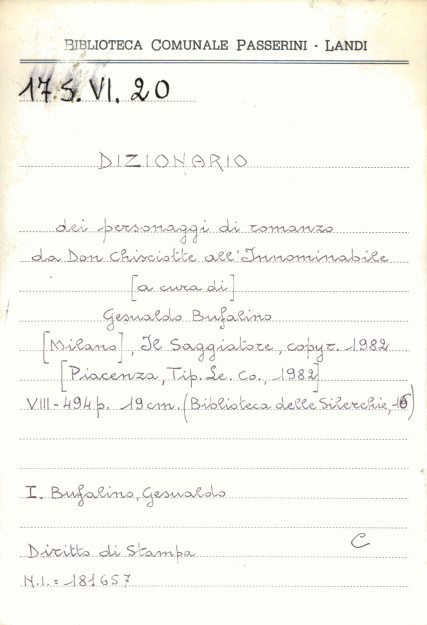 BIBLIOTECA COMUNALE PASSERINI - LANDI
17.S.VI.20
DIZIONARIO
dei personaggi di romanzo
da Don Chisciotte all'Innominabile
[a cura di]
Gesualdo Bufalino
[Milano], Il Saggiatore, copyr. 1982
[Piacenza, Tip. Le. Co., 1982]
VIII-494 p. 19 cm. (Biblioteca delle Silerchie, 16)
I. Bufalino, Gesualdo
C
Diritto di Stampa
N.I. = 181657